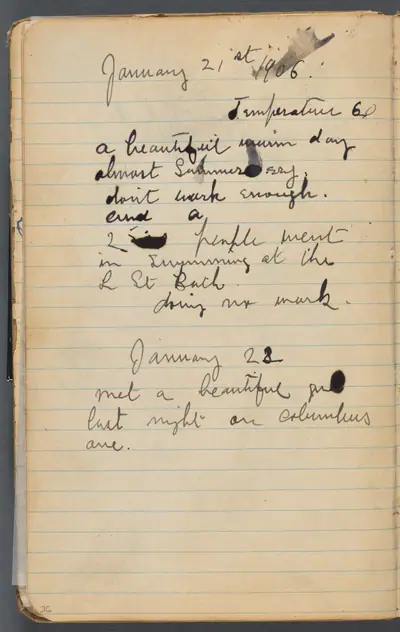 January 21st 1906.
Temperature 60
a beautiful warm day
almost Summer
dont work enough.
and a
people went
in Swimming at the
L St Bath
doing no work.
January 22
met a beautiful
last night on Columbus
ave.
26